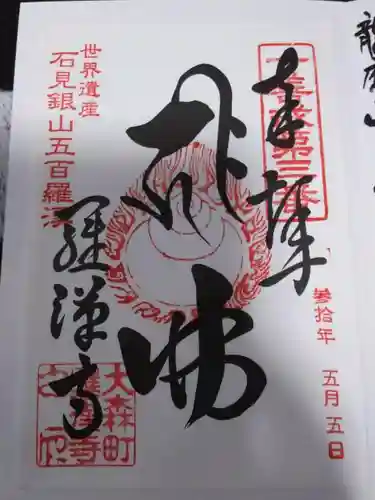 奉拝
第三番
参拾年 五月五日
佛
世界遺産
石見銀山五百羅漢
羅漢寺
大森町
羅漢寺
之印